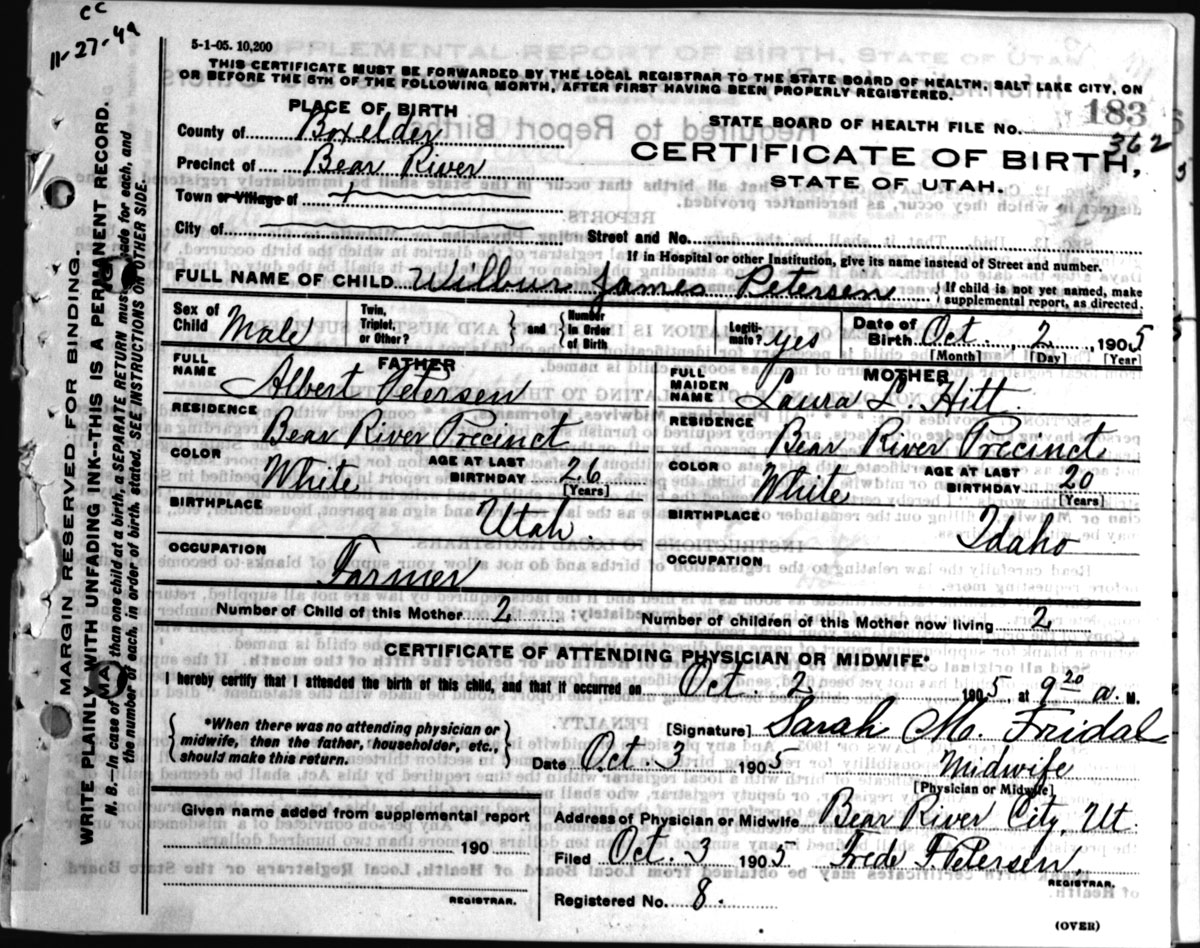 CC
11-27-49
5-1-05. 10,200
THIS CERTIFICATE MUST BE FORWARDED BY THE LOCAL REGISTRAR TO THE STATE BOARD OF HEALTH, SALT LAKE CITY, ON
OR BEFORE THE 5TH OF THE FOLLOWING MONTH, AFTER FIRST HAVING BEEN PROPERLY REGISTERED.
PLACE OF BIRTH
County of Boxelder
Precinct of Bear River
Town or Village of
City of
STATE BOARD OF HEALTH FILE NO. 183
362
CERTIFICATE OF BIRTH,
STATE OF UTAH.
Street and No.
If in Hospital or other Institution, give its name instead of Street and number.
FULL NAME OF CHILD Wilbur James Petersen { If child is not yet named, make supplemental report, as directed.
Sex of Child Male
Twin, Triplet, or Other?
} and {
Number in Order of Birth
Legitimate? yes
Date of Birth Oct. 2, 1905
[Month] [Day] [Year]
FATHER
FULL NAME Albert Petersen
RESIDENCE Bear River Precinct
COLOR White AGE AT LAST BIRTHDAY 26
[Years]
BIRTHPLACE Utah.
OCCUPATION Farmer
MOTHER
FULL MAIDEN NAME Laura L. Hitt.
RESIDENCE Bear River Precinct
COLOR White AGE AT LAST BIRTHDAY 20
[Years]
BIRTHPLACE Idaho
OCCUPATION
Number of Child of this Mother 2 Number of children of this Mother now living 2
CERTIFICATE OF ATTENDING PHYSICIAN OR MIDWIFE.*
I hereby certify that I attended the birth of this child, and that it occurred on Oct. 2 1905 at 9 20 a. M.
{ *When there was no attending physician or
midwife, then the father, householder, etc.,
should make this return. }
[Signature] Sarah M. Fridal
Date Oct. 3 1905 Midwife
[Physician or Midwife]
Given name added from supplemental report
190
REGISTRAR.
Address of Physician or Midwife Bear River City, Ut.
Filed Oct. 3 1905 Frede F. Petersen,
REGISTRAR.
Registered No. 8.
(OVER)
MARGIN RESERVED FOR BINDING.
WRITE PLAINLY WITH UNFADING INK--THIS IS A PERMANENT RECORD.
N. B.—In case of more than one child at a birth, a SEPARATE RETURN must be made for each, and
the number of each, in order of birth, stated. SEE INSTRUCTIONS ON OTHER SIDE.